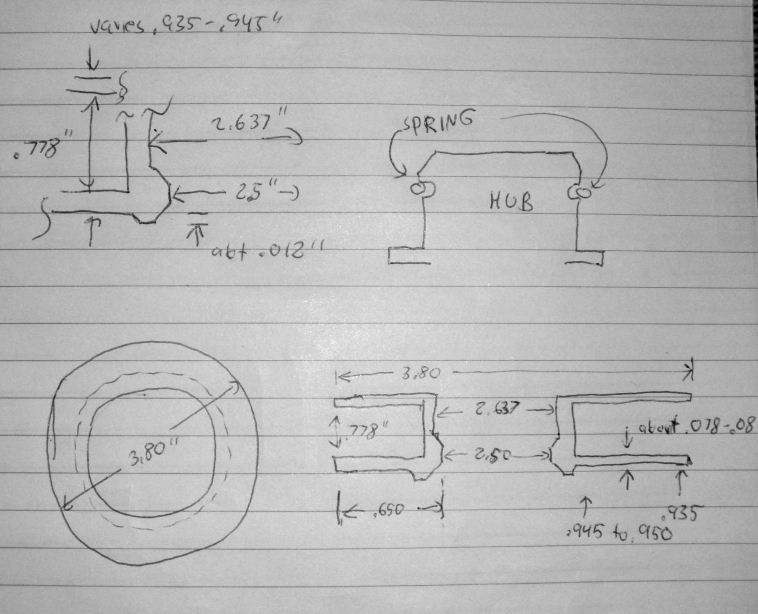 varies .935-.945"
2.637"
.778"
SPRING
2.5"
HUB
abt .012"
3.80
2.637
.778"
about .078-.08
3.80"
2.50
.650
.935
.945 to .950